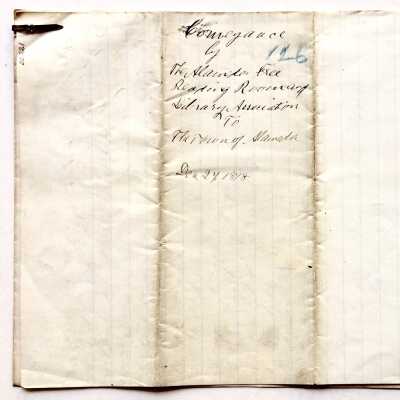 Conveyance
by 126
The Alameda Free
Reading Room and
Library Association
To
The Town of Alameda
Dec 24 18